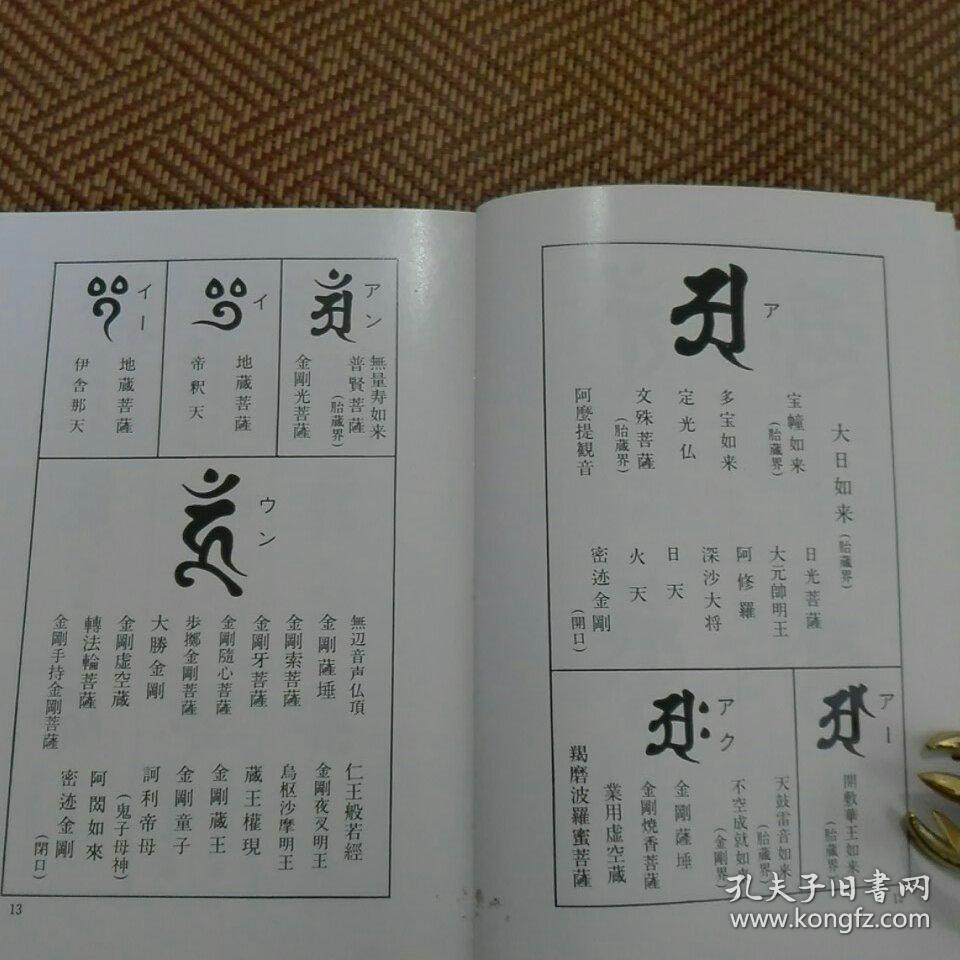 ア
大日如来(胎蔵界)
宝幢如来(胎蔵界)
多宝如来
定光仏
文殊菩薩(胎蔵界)
阿麼提観音
日光菩薩
大元帥明王
阿修羅
深沙大将
日天
火天
密迹金剛(開口)
アー
開敷華王如来(胎蔵界)
アク
天鼓雷音如来(胎蔵界)
不空成就如(金剛界
金剛薩埵
金剛焼香菩薩
業用虚空蔵
羯磨波羅蜜菩薩
アン
無量寿如来
普賢菩薩(胎蔵界)
金剛光菩薩
イ
地蔵菩薩
帝釈天
イー
地蔵菩薩
伊舎那天
ウン
無辺音声仏頂
金剛薩埵
金剛索菩薩
金剛牙菩薩
金剛随心菩薩
歩擲金剛菩薩
大勝金剛
金剛虚空蔵
轉法輪菩薩
金剛手持金剛菩薩
仁王般若經
金剛夜叉明王
烏枢沙摩明王
蔵王權現
金剛蔵王
金剛童子
訶利帝母(鬼子母神)
阿閦如來
密迹金剛(閉口)
13
孔夫子旧書网
www.kongfz.com